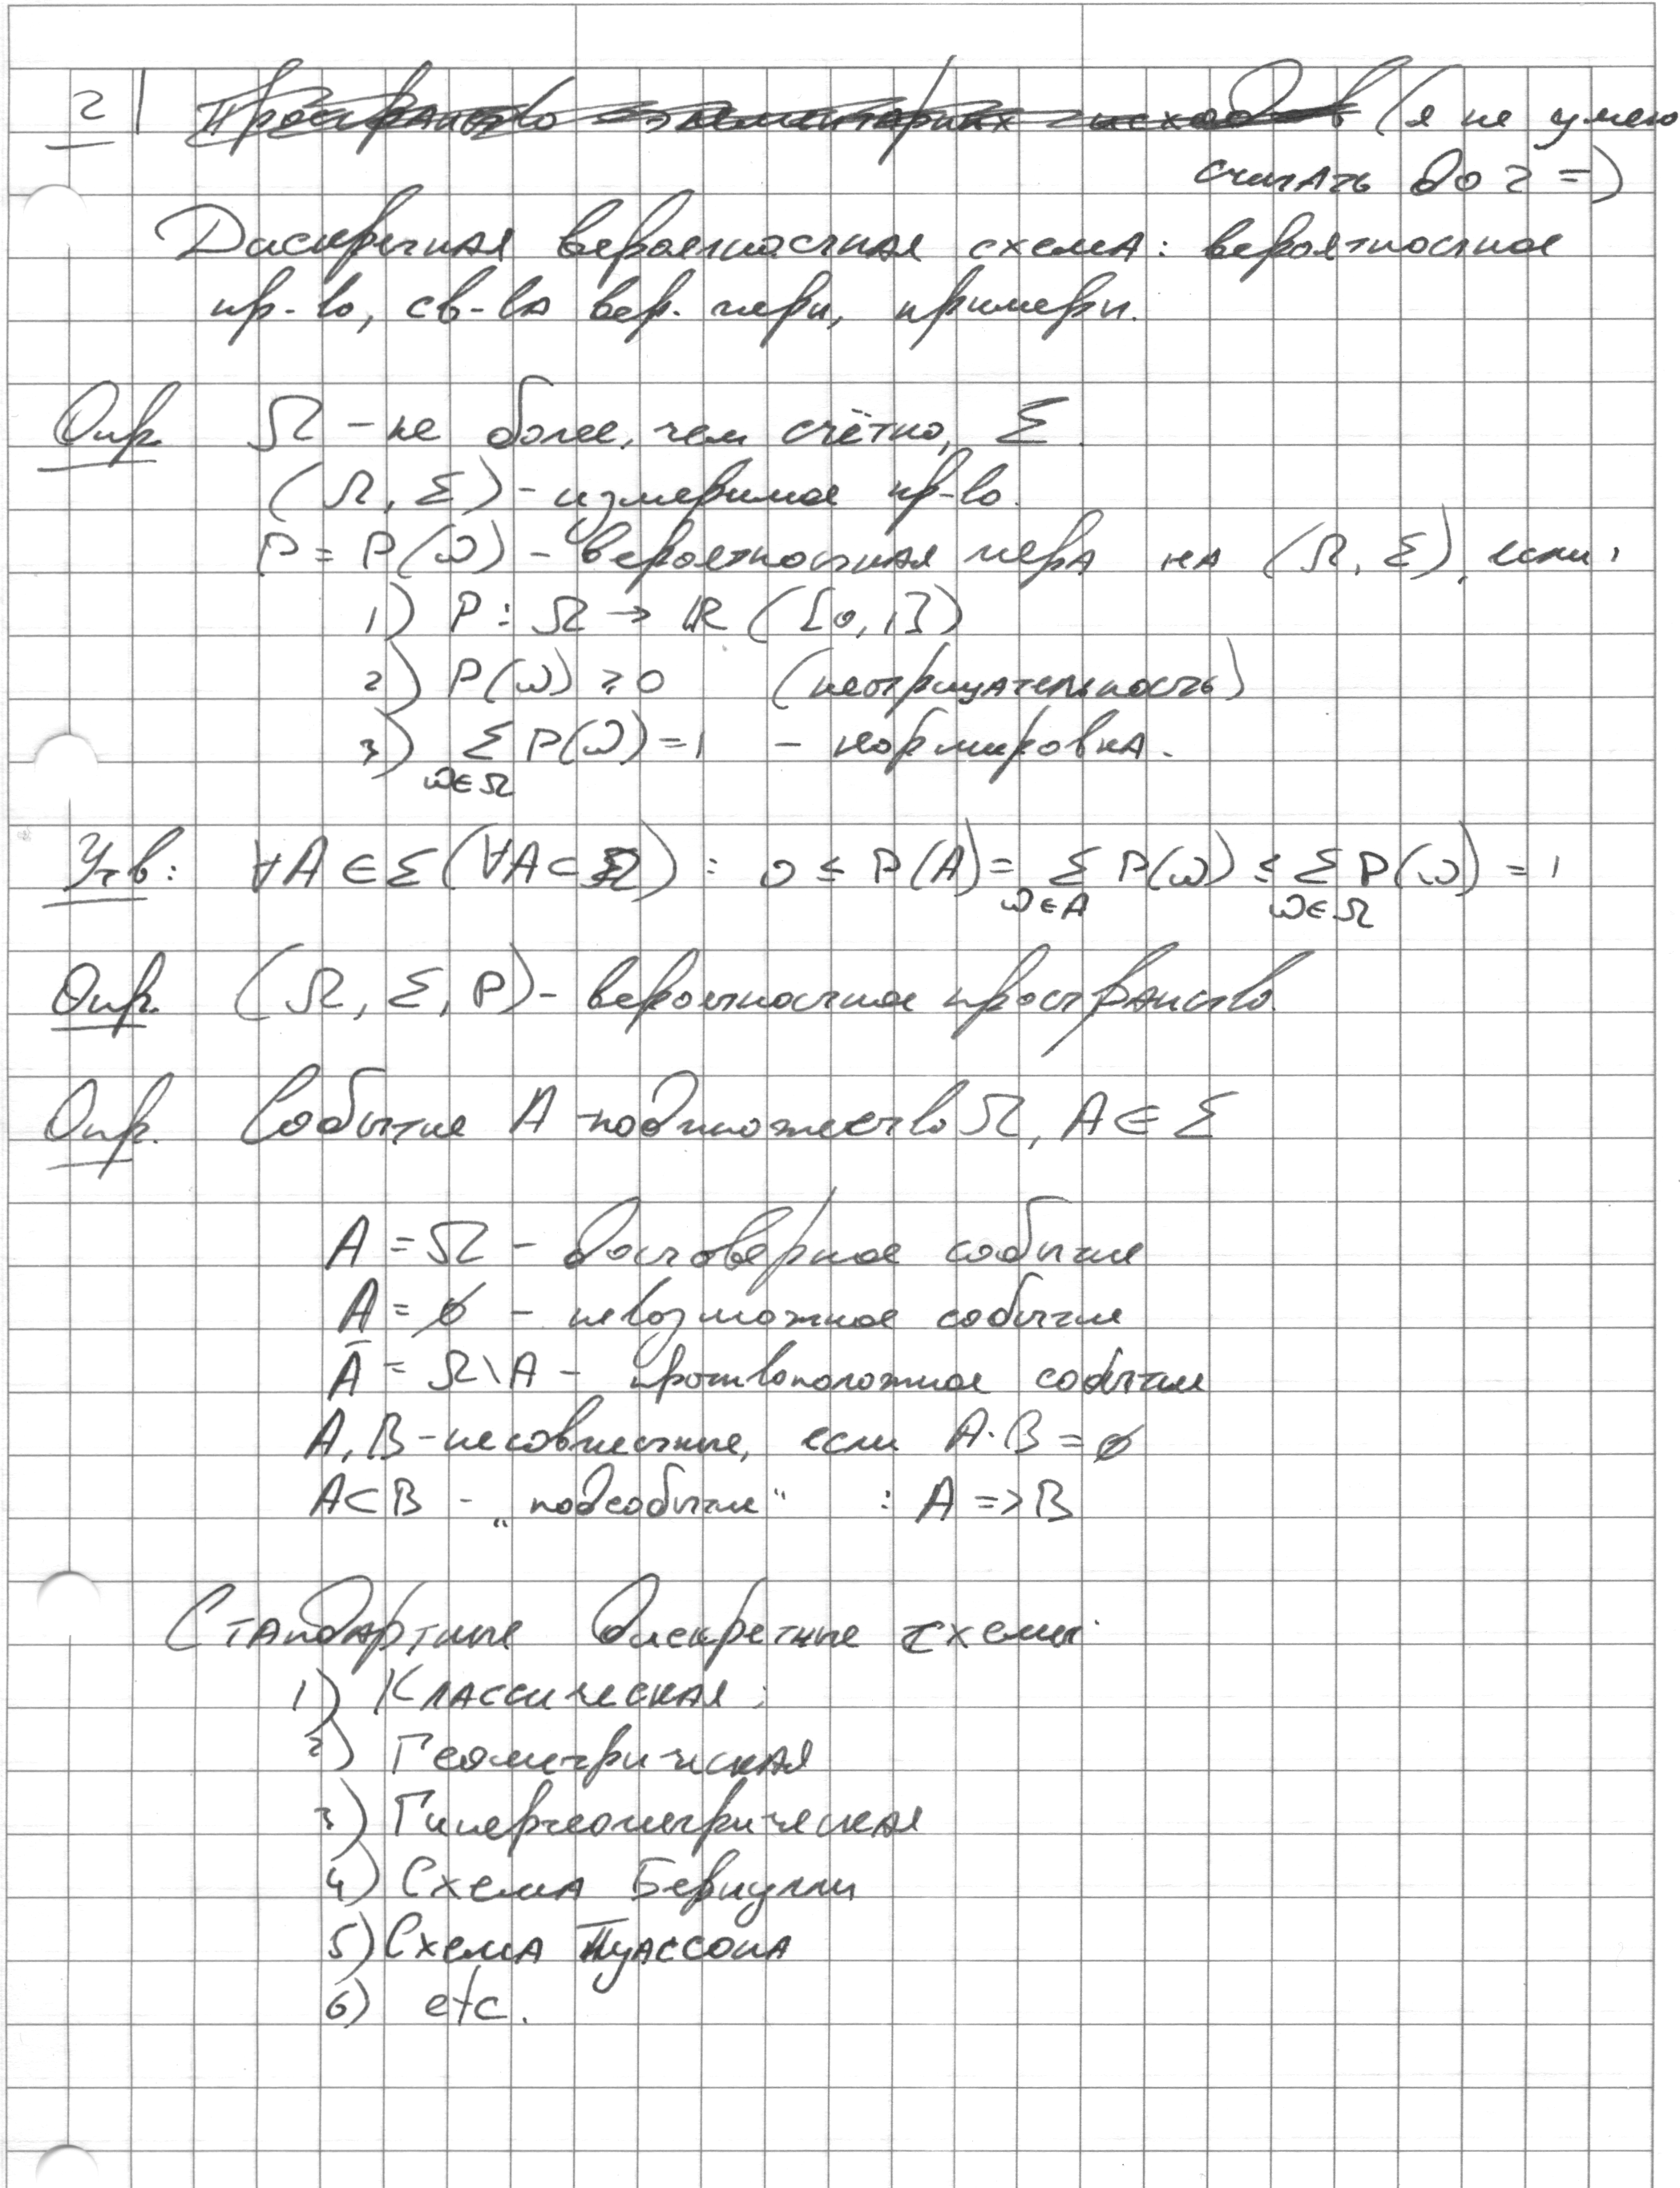 2 Пространство элементарных исходов (я не умею
считать до 2 =)
Дискретная вероятностная схема: вероятностное
пр-во, св-ва вер. меры, примеры.
Опр. Ω - не более, чем счётно, Σ.
(Ω, Σ) - измеримое пр-во.
P = P(ω) - вероятностная мера на (Ω, Σ), если:
1) P: Ω → ℝ ([0,1])
2) P(ω) ≥ 0 (неотрицательность)
3) Σ P(ω) = 1 - нормировка.
ω∈Ω
Утв: ∀A ∈ Σ (∀A ⊂ Ω) : 0 ≤ P(A) = Σ P(ω) ≤ Σ P(ω) = 1
ω∈A ω∈Ω
Опр. (Ω, Σ, P) - вероятностное пространство.
Опр. Событие A - подмножество Ω, A ∈ Σ
A = Ω - достоверное событие
A = ∅ - невозможное событие
Ā = Ω \ A - противоположное событие
A, B - несовместные, если A·B = ∅
A ⊂ B - „подсобытие“ : A => B
Стандартные дискретные схемы:
1) Классическая;
2) Геометрическая
3) Гипергеометрическая
4) Схема Бернулли
5) Схема Пуассона
6) etc.